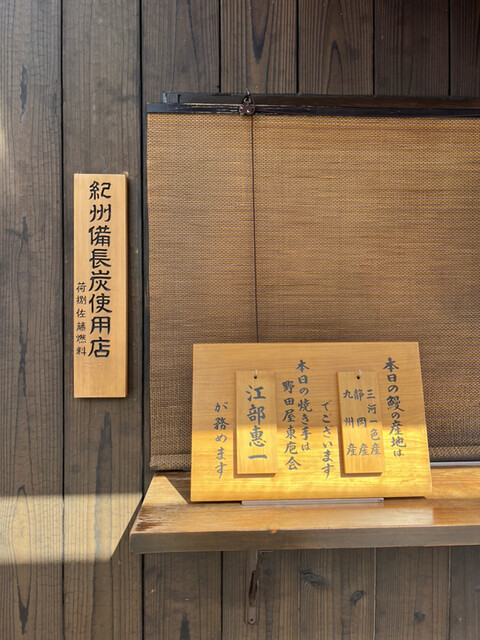 紀州備長炭使用店
荷捌 佐藤燃料
本日の鰻の産地は
三河一色産
静岡産
九州産
でございます
本日の焼き手は
野田屋東庖会
江部惠一
が務めます